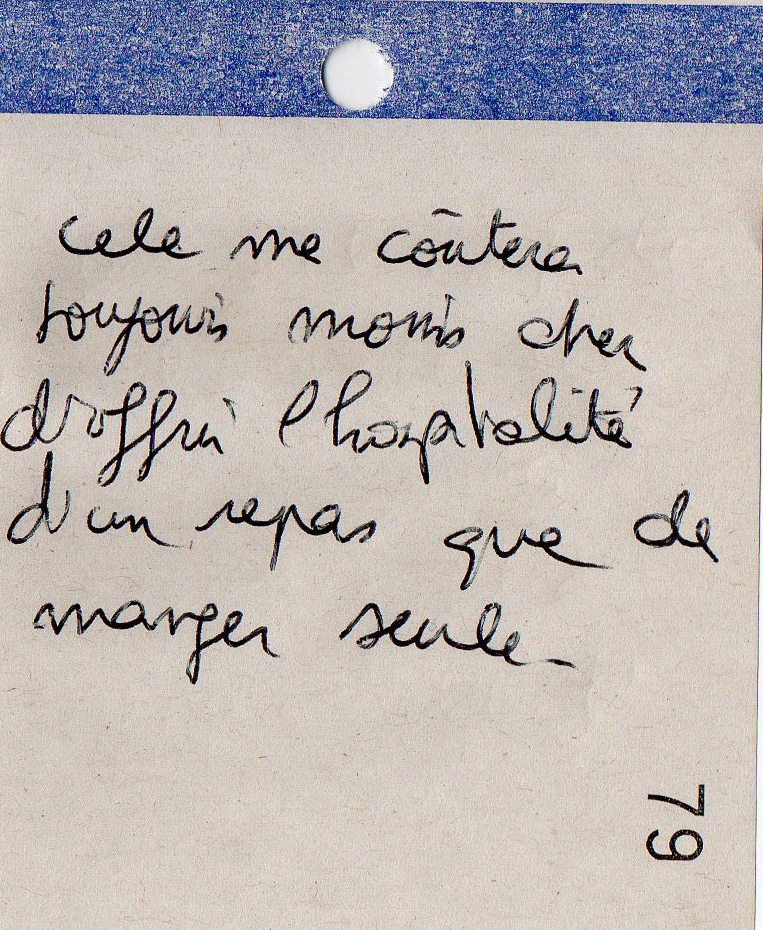 cela me coûtera
toujours moins cher
d'offrir l'hospitalité
d'un repas que de
manger seule
79